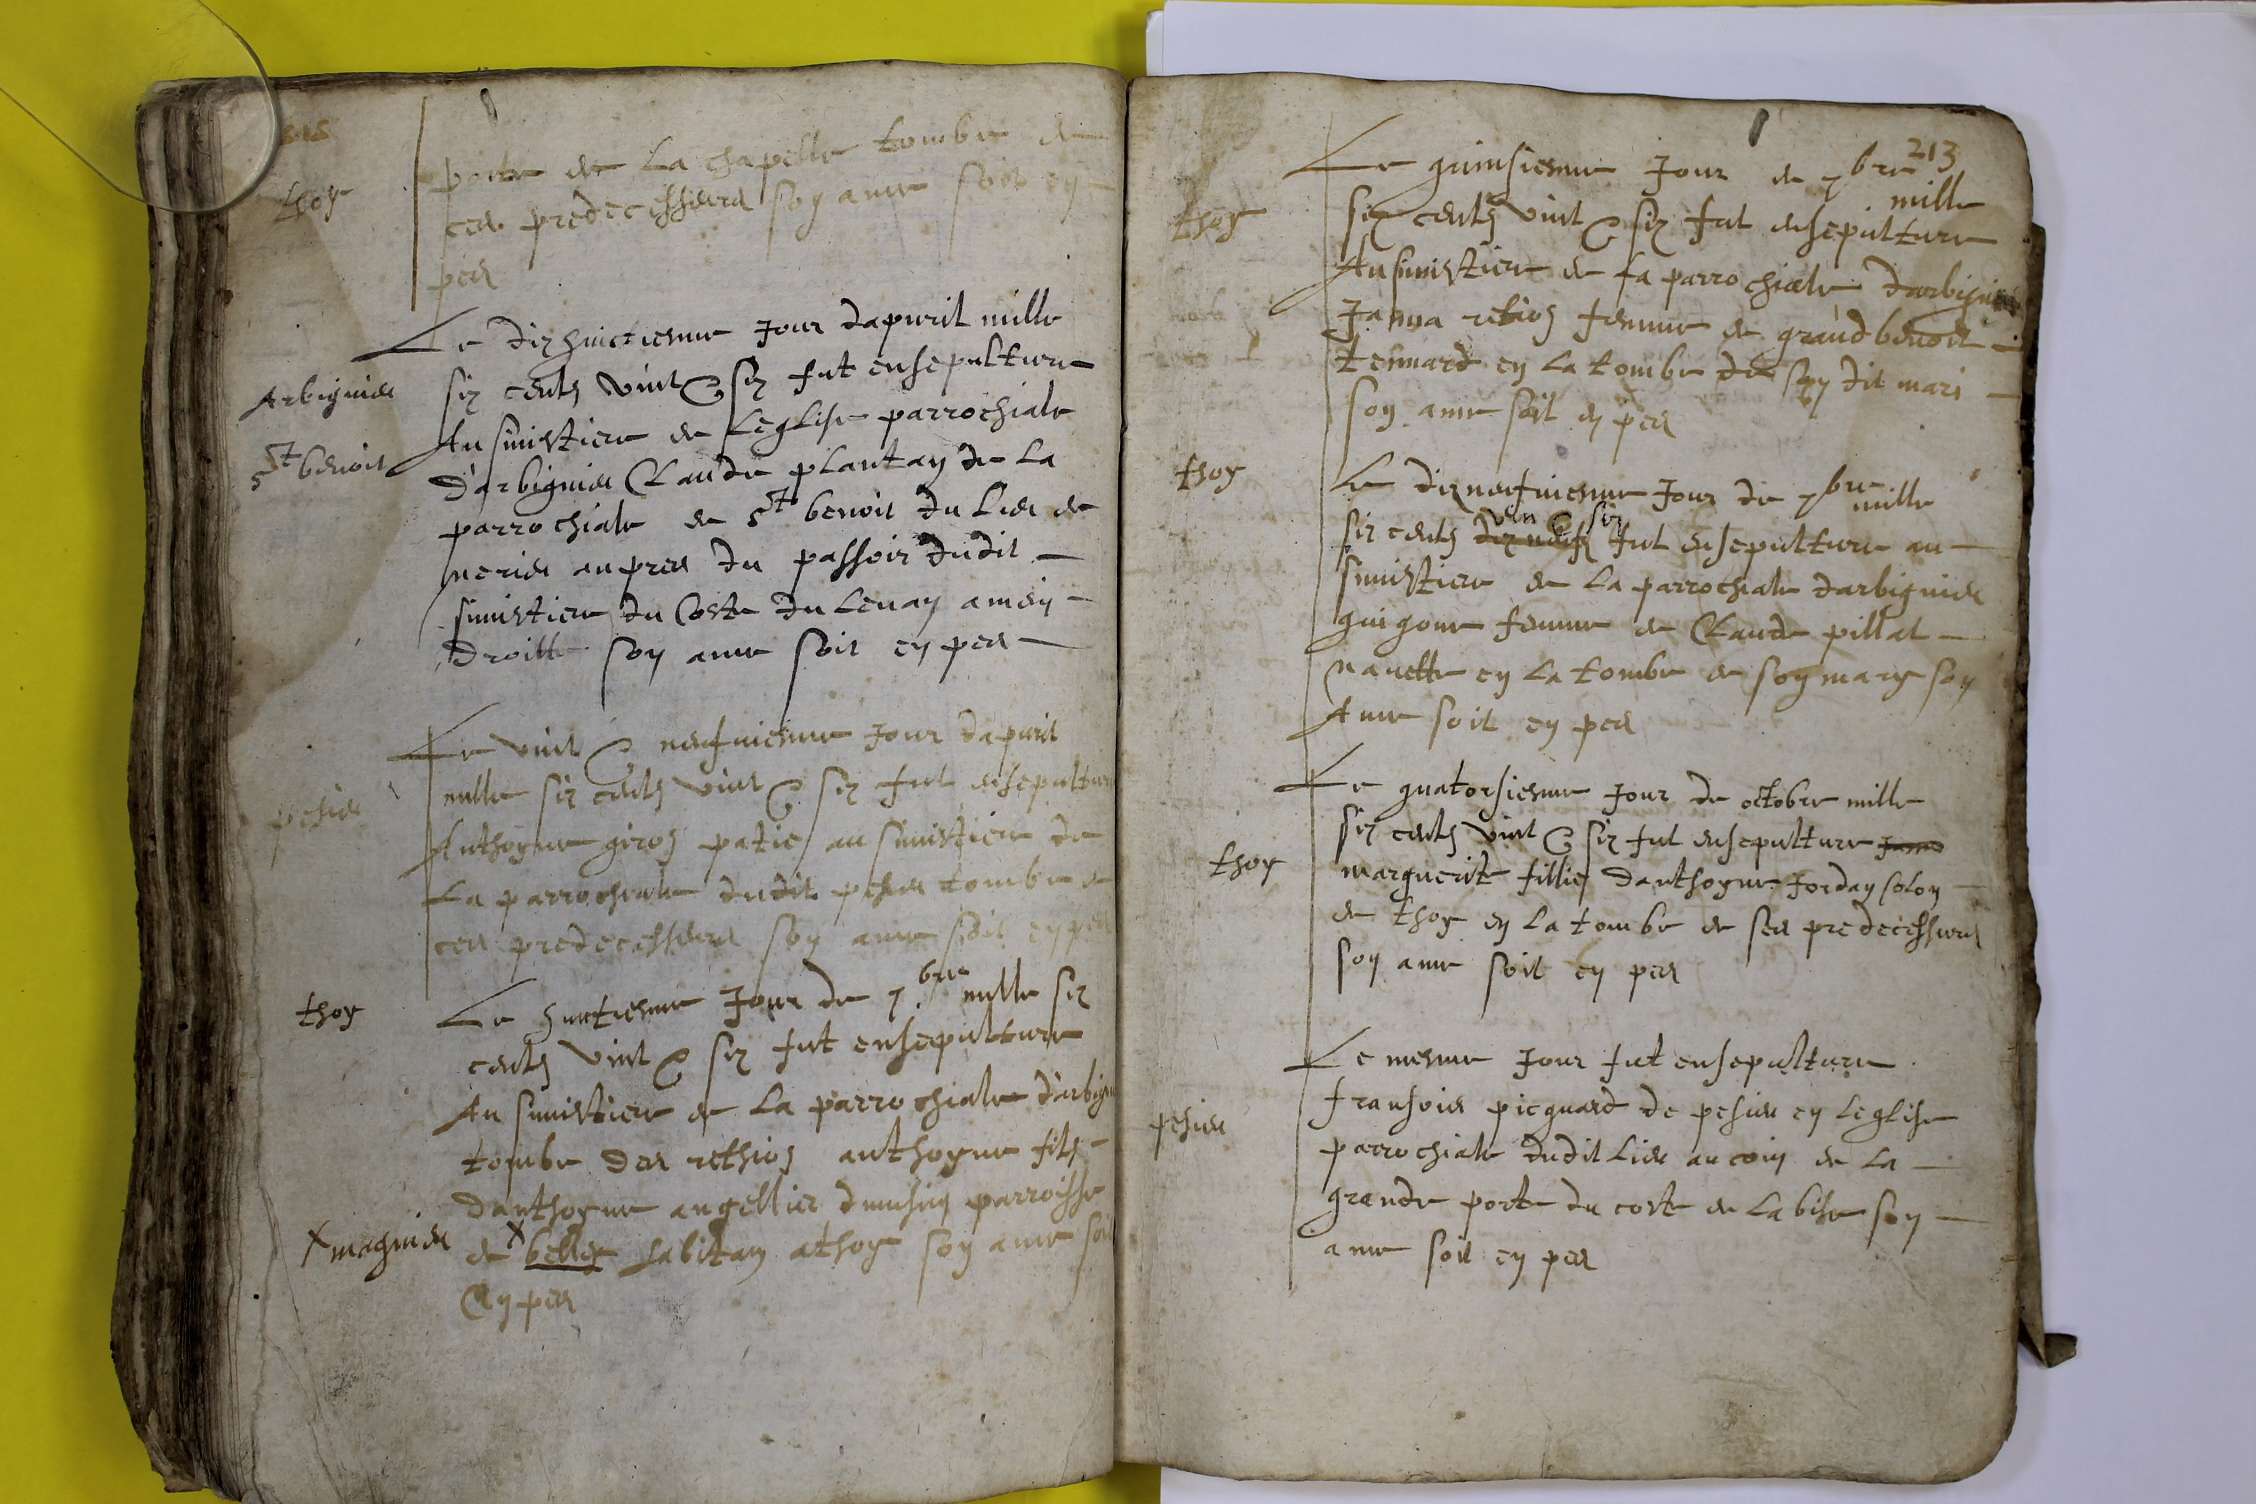 thoy
porte de la chapelle tombe de
ces predecesseurs soy ame soit ey
pes
Le dixhuictiesme Jour dapuril mille
Arbignieu
six cents vint & six fut ensepulture
Au simistiere de leglise parrochiale
St benoit
d'arbignieu Claude plantay de la
parrochiale de St benoit du lieu de
aupres du passoir dudit
simistiere du coste du levay a meiy
droitte soy ame soit ey pes
Le vint & neufviesme Jour dapuril
mille six cents vint & six fut ensepulture
pesieu
Anthoyne giros patie au simistiere de
La parrochiale dudit pesieu tombe de
ces predecesseurs soy ame soit ey pes
thoy
Le huictiesme Jour de 7.bre mille six
cents vint & six fut ensepulture
Au simistiere de la parrochiale d'arbign
tombe des rethios anthoyne fils
danthoyne angellier parroisse
x magnieu
de x belley habitay a thoy soy ame soit
Ey pes
213
Le quinsiesme Jour de 7bre mille
thoy
six cents vint & six fut ensepulture
Au simistiere de sa parrochiale darbignieu
Janna retios femme de grand benoit
ey la tombe de soy dit mari
soy ame soit ey pes
thoy
Le dixneufviesme Jour de 7bre mille
six cents vin & six fut ensepulture au
simistiere de la parrochiale darbignieu
guigone femme de Claude pillat
navette ey la tombe de soy mary soy
Ame soit ey pes
Le quatorsiesme Jour de octobre mille
six cents vint & six fut ensepulture
thoy
marguerite fillie danthoyne Jorday soloy
de thoy ey la tombe de ses predecesseurs
soy ame soit ey pes
Le mesme Jour fut ensepulture
pesieu
fransois picquard de pesieu ey leglise
parrochiale dudit lieu au coiy de la
grande porte du coste de la bise soy
ame soit ey pes